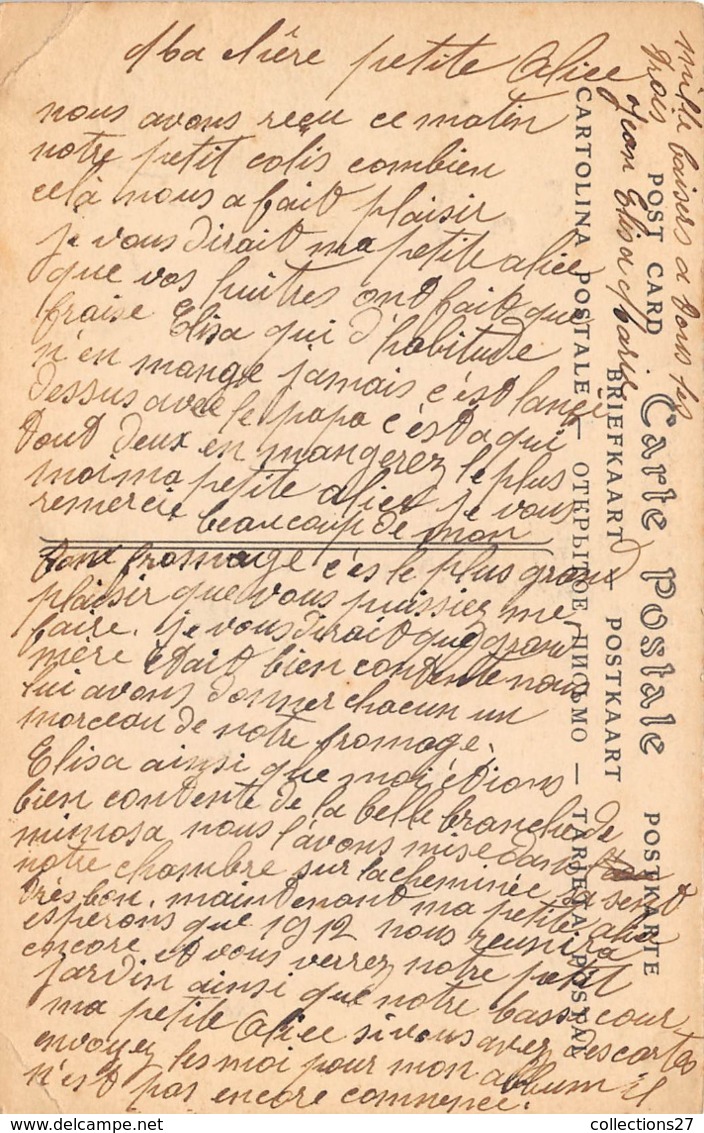 Ma chère petite Alice
nous avons reçu ce matin
notre petit colis combien
celà nous a fait plaisir
je vous dirait ma petite alice
que vos huitres ont fait que
fraise Elisa qui d'habitude
n'en mange jamais c'est lancée
dessus avec le papa c'était a qui
tout deux en mangerez le plus
moi ma petite alice je vous
remercie beaucoup de mon
bont fromage c'es le plus grand
plaisir que vous puissiez me
faire. je vous dirait que grand
mère était bien contente nous
lui avons donner chacun un
morceau de notre fromage.
Elisa ainsi que moi étions
bien contente de la belle branche de
mimosa nous l'avons mise dans
notre chambre sur la cheminée sa sent
très bon. maintenant ma petite alice
espérons que 1912 nous reunira
encore et vous verrez notre petit
jardin ainsi que notre basse cour
ma petite Alice si vous avez des cartes
envoyez les moi pour mon album il
n'est pas encore commencé.
mille baisers a tous les
trois
Jean Elisa Marie
Carte Postale
POST CARD
POSTKARTE
BRIEFKAART — POSTKAART
CARTOLINA POSTALE — ОТКРЫТОЕ ПИСЬМО — TARJETA POSTAL
collections27